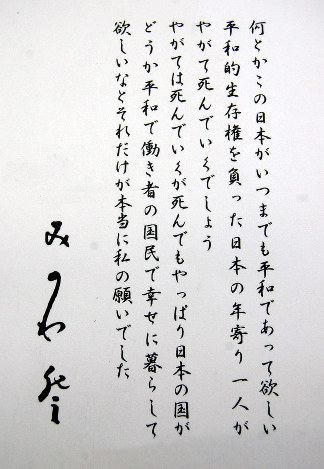 何とかこの日本がいつまでも平和であって欲しい
平和的生存権を負った日本の年寄り一人が
やがて死んでいくでしょう
やがては死んでいくが死んでもやっぱり日本の国が
どうか平和で働き者の国民で幸せに暮らして
欲しいなとそれだけが本当に私の願いでした
みのわ 登